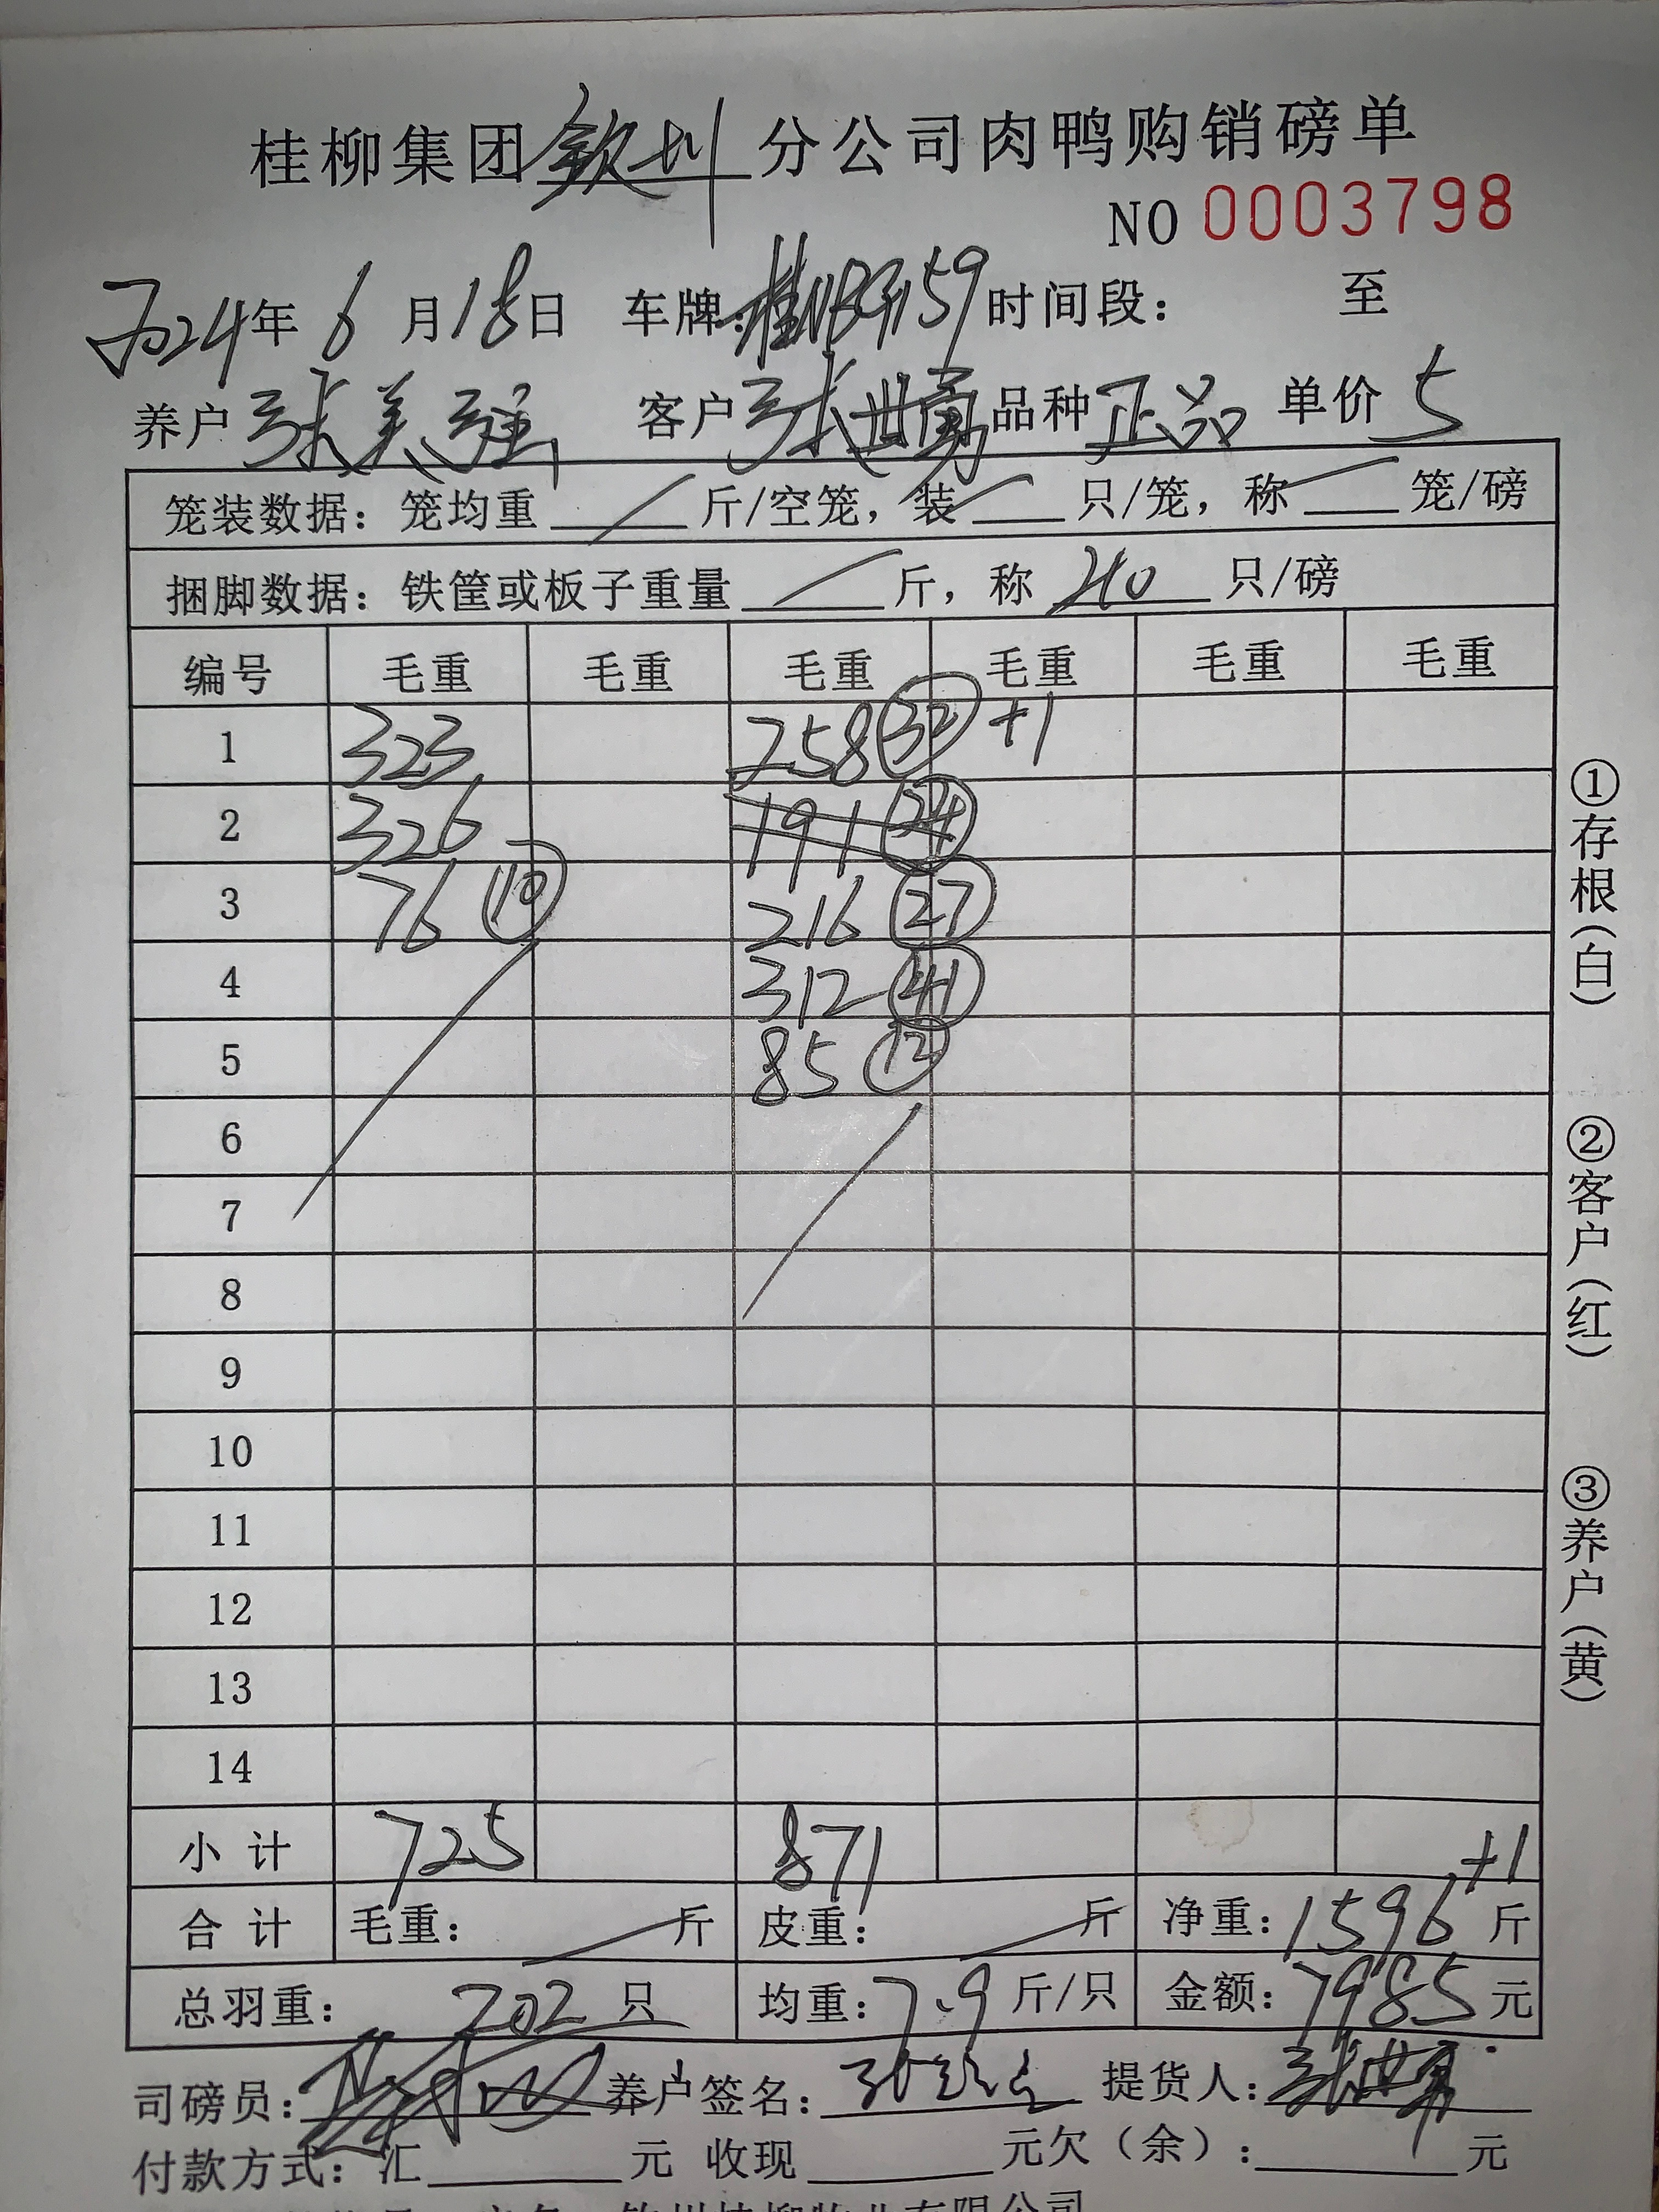 桂柳集团钦州分公司肉鸭购销磅单
NO 0003798
2024年6月18日 车牌:桂NBG159 时间段: 至
养户 张美强 客户 张世勇 品种 正品 单价 5
笼装数据: 笼均重 斤/空笼, 装 只/笼, 称 笼/磅
捆脚数据: 铁筐或板子重量 斤, 称 40 只/磅
编号 毛重 毛重 毛重 毛重 毛重 毛重
1 323 258 32 +1
2 326 191 24
3 76 10 216 27
4 312 41
5 85 12
6
7
8
9
10
11
12
13
14
小计 725 871 +1
合计 毛重: 斤 皮重: 斤 净重: 1596 斤
总羽重: 202 只 均重: 7.9 斤/只 金额: 7985 元
司磅员: 养户签名: 提货人: 张世勇
付款方式: 汇 元 收现 元欠(余): 元
①存根(白)
②客户(红)
③养户(黄)